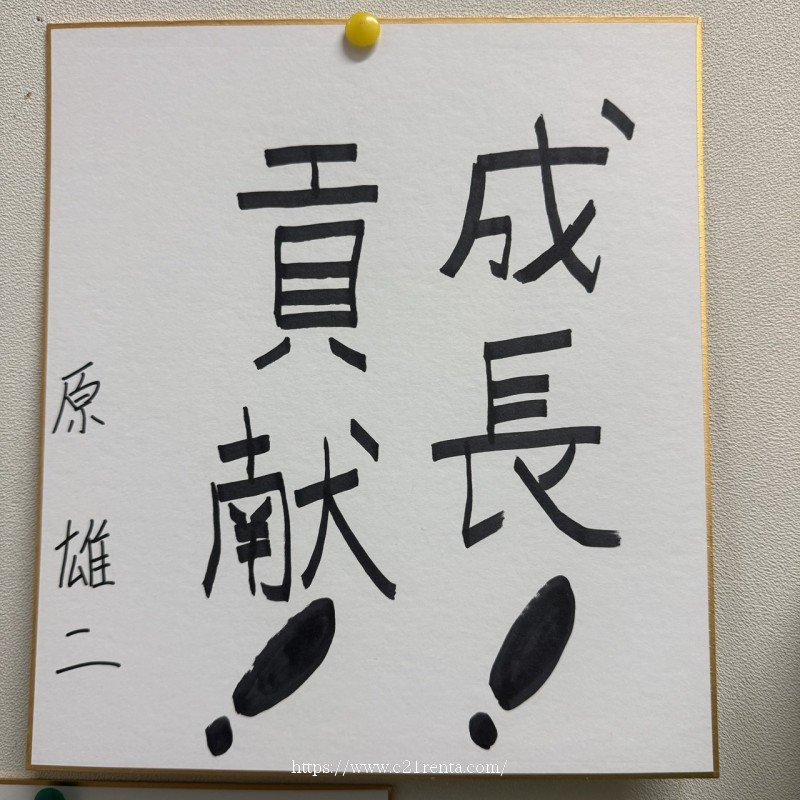 成長！
貢献！
原 雄二
https://www.c21renta.com/